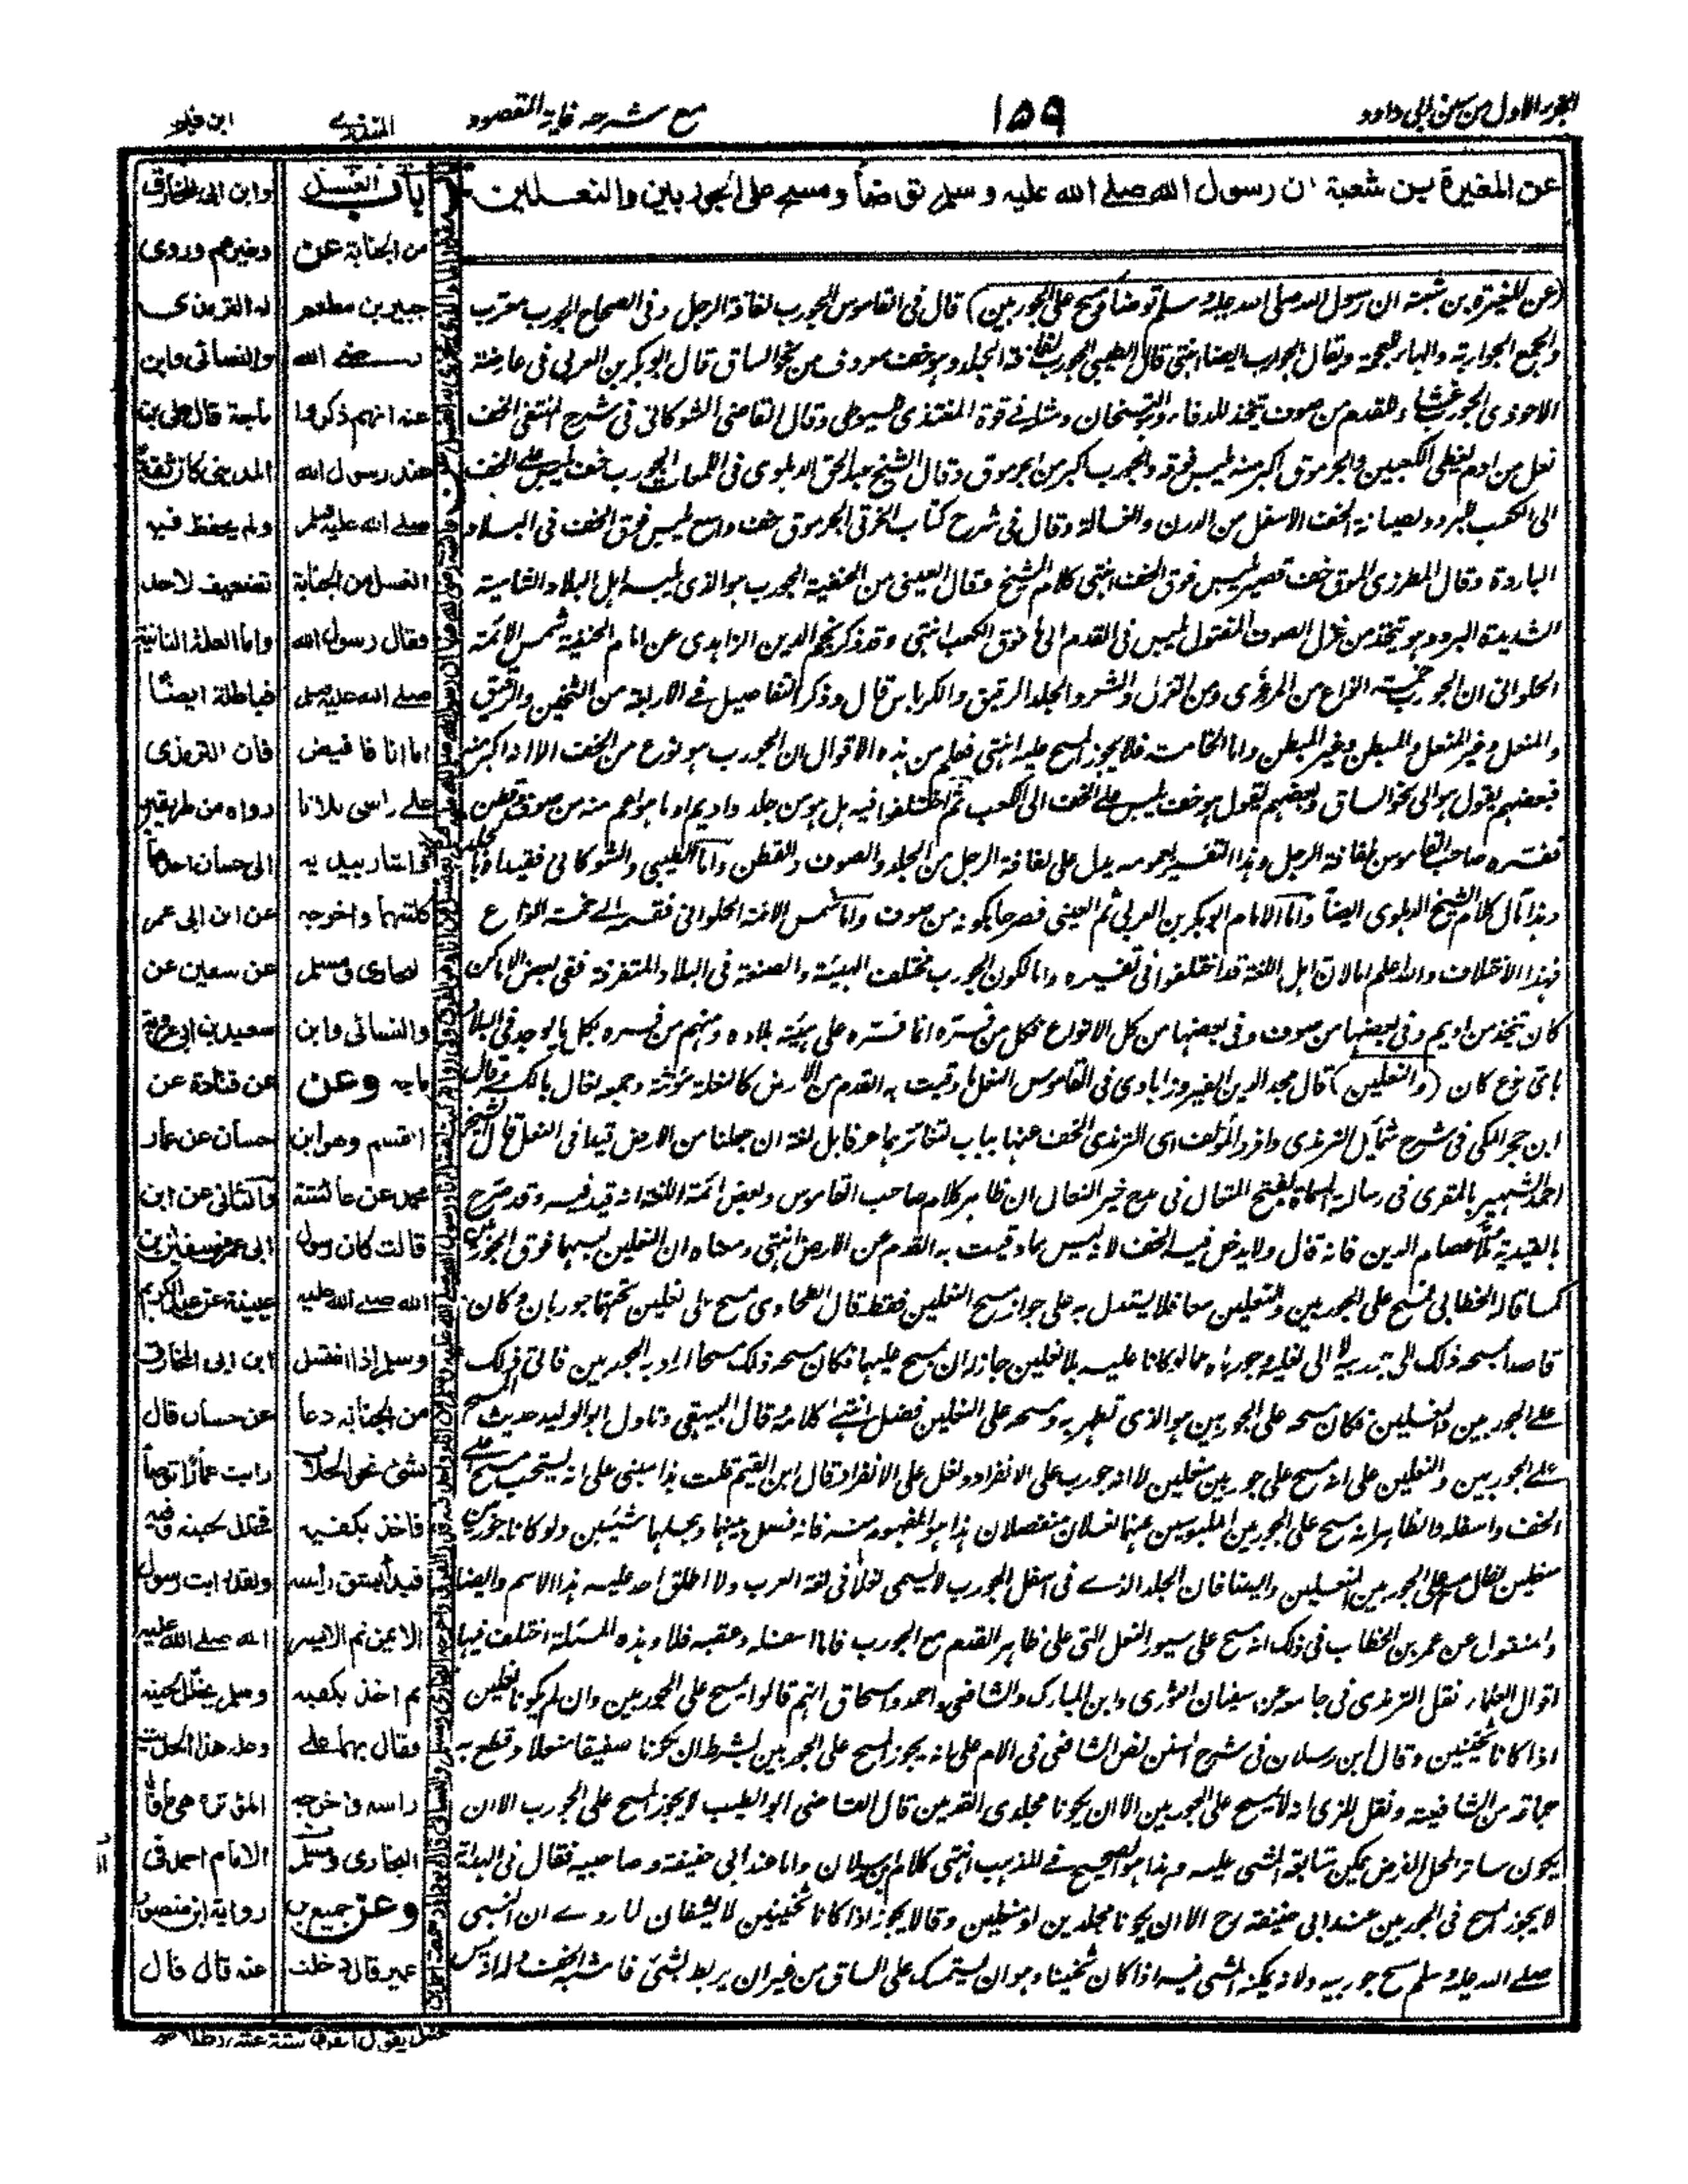 الجزء الاول من سنن ابي داود
١٥٩
مع شرحه غاية المقصود
المنذري
ابن قيم
عن المغيرة بن شعبة ان رسول الله صلى الله عليه وسلم توضأ ومسح على الجوربين والنعلين
(عن المغيرة بن شعبة ان رسول الله صلى الله عليه وسلم توضأ ومسح على الجوربين) قال في القاموس الجورب لفافة الرجل وفي الصحاح الجورب معرب
والجمع الجواربة والهاء للعجمة ويقال الجوارب ايضا انتهى قال الطيبي الجورب لفافة الجلد وهو خف معروف من نحو الساق قال ابو بكر بن العربي في عارضة
الاحوذي الجورب غشاء للقدم من صوف يتخذ للدفاء وهو التسخان ومثله في قوة المغتذي للسيوطي وقال القاضي الشوكاني في شرح المنتقى الخف
نعل من ادم يغطي الكعبين والجرموق اكبر منه يلبس فوقه والجورب اكبر من الجرموق وقال الشيخ عبد الحق الدهلوي في اللمعات الجورب خف يلبس على الخف
الى الكعب للبرد ولصيانة الخف الاسفل من الدرن والغسالة وقال في شرح كتاب الخرقي الجرموق خف واسع يلبس فوق الخف في البلاد
الباردة وقال المطرزي الموق خف قصير يلبس فوق الخف انتهى كلام الشيخ وقال العيني من الحنفية الجورب هو الذي يلبسه اهل البلاد الشامية
الشديدة البرد وهو يتخذ من غزل الصوف المفتول يلبس في القدم الى ما فوق الكعب انتهى وقد ذكر نجم الدين الزاهدي عن امام الحنفية شمس الائمة
الحلواني ان الجورب خمسة انواع من المرعزى ومن الغزل والشعر والجلد الرقيق والكرباس قال وذكر التفاصيل في الاربعة من الثخين والرقيق
والمنعل وغير المنعل والمبطن وغير المبطن واما الخامسة فلا يجوز المسح عليه انتهى فعلم من هذه الاقوال ان الجورب هو نوع من الخف الا انه اكبر منه
فبعضهم يقول هو الى نحو الساق وبعضهم يقول هو خف يلبس على الخف الى الكعب ثم اختلفوا فيه هل هو من جلد واديم او ما هو اعم منه من صوف وقطن
ففسره صاحب القاموس بلفافة الرجل وهذا التفسير بعمومه يدل على لفافة الرجل من الجلد والصوف والقطن واما الطيبي والشوكاني فقيداه بالجلد
وهذا مآل كلام الشيخ الدهلوي ايضاً واما الامام ابو بكر بن العربي ثم العيني فصرحا بكونه من صوف واما شمس الائمة الحلواني فقسمه الى خمسة انواع
فهذا الاختلاف والله اعلم اما لان اهل اللغة قد اختلفوا في تفسيره واما لكون الجورب مختلف الهيئة والصنعة في البلاد المتفرقة ففي بعض الاماكن
كان يتخذ من اديم وفي بعضها من صوف وفي بعضها من كل الانواع فكل من فسره انما فسره على هيئة بلاده ومنهم من فسره بكل ما يوجد في البلاد
باي نوع كان (والنعلين) قال مجد الدين الفيروزابادي في القاموس النعل ما وقيت به القدم من الارض كالنعلة مؤنثة وجمعه نعال بالكسر وقال
ابن حجر المكي في شرح شمائل الترمذي وافرد المؤلف اي الترمذي الخف عنها بباب لتغايرهما عرفا بل لغة ان جعلنا من الارض قيدا في النعل قال الشيخ
احمد الشهير بالمقري في رسالته المسماة بفتح المتعال في مدح خير النعال ان ظاهر كلام صاحب القاموس وبعض ائمة اللغة انه قيد فيه وقد صرح
بالقيدية ملا عصام الدين فانه قال ولا يدخل فيه الخف لانه ليس مما وقيت به القدم عن الارض انتهى ومعناه ان النعلين لبسهما فوق الجوربين
كما قاله الخطابي فمسح على الجوربين والنعلين معا فلا يستدل به على جواز مسح النعلين فقط قال الطحاوي مسح على نعلين تحتهما جوربان وكان
قاصدا بمسحه ذلك الى جوربيه لا الى نعليه وجورباه مما لو كانا عليه بلا نعلين جاز له ان يمسح عليهما فكان مسحه ذلك مسحا اراد به الجوربين فاتى ذلك
على الجوربين والنعلين فكان مسحه على الجوربين هو الذي تطهر به ومسحه على النعلين فضل انتهى كلامه قال البيهقي وتاول ابو الوليد حديث المسح
على الجوربين والنعلين على انه مسح على جوربين منعلين لا انه جورب على الانفراد ونعل على الانفراد قال ابن القيم قلت هذا مبني على انه يستحب مسح على
الخف واسفله والظاهر انه مسح على الجوربين الملبوسين عليهما نعلان منفصلان هذا هو المفهوم منه فانه فصل بينهما وجعلهما شيئين ولو كانا جوربين
منعلين لقال مسح على الجوربين المنعلين وايضا فان الجلد الذي في اسفل الجورب لا يسمى نعلا في لغة العرب ولا اطلق احد عليه هذا الاسم وايضا
والمنقول عن عمر بن الخطاب في ذلك انه مسح على سيور النعل التي على ظاهر القدم مع الجورب فاما اسفله وعقبه فلا وهذه المسئلة اختلف فيها
اقوال العلماء نقل الترمذي في جامعه عن سفيان الثوري وابن المبارك والشافعي واحمد واسحاق انهم قالوا يمسح على الجوربين وان لم يكونا نعلين
اذا كانا ثخينين وقال ابن رسلان في شرح السنن نص الشافعي في الام على انه يجوز المسح على الجوربين بشرط ان يكونا صفيقا منعلا وقطع به
جماعة من الشافعية ونقل المزني انه لا يمسح على الجوربين الا ان يكونا مجلدي القدمين قال القاضي ابو الطيب لا يجوز المسح على الجورب الا ان
يكون ساترا لمحل الفرض يمكن متابعة المشي عليه وهذا هو الصحيح في المذهب انتهى كلام ابن رسلان واما عند ابي حنيفة وصاحبيه فقال في الهداية
لا يجوز المسح في الجوربين عند ابي حنيفة رح الا ان يكونا مجلدين او منعلين وقالا يجوز اذا كانا ثخينين لا يشفان لما روي ان النبي
صلى الله عليه وسلم مسح جوربيه ولانه يمكنه المشي فيه اذا كان ثخينا وهو ان يستمسك على الساق من غير ان يربط بشئ فاشبه الخف وله انه ليس
باب الغسل
من الجنابة عن
جبير بن مطعم
رضي الله
عنه انهم ذكروا
عند رسول الله
صلى الله عليه وسلم
الغسل من الجنابة
فقال رسول الله
صلى الله عليه وسلم
اما انا فافيض
على راسي ثلاثا
واشار بيديه
كلتيهما واخرجه
البخاري ومسلم
والنسائي وابن
ماجه وعن
القسم وهو ابن
محمد عن عائشة
قالت كان رسول
الله صلى الله عليه
وسلم اذا اغتسل
من الجنابة دعا
بشئ نحو الحلاب
فاخذ بكفيه
فبدأ بشق راسه
الايمن ثم الايسر
ثم اخذ بكفيه
فقال بهما على
راسه واخرجه
البخاري ومسلم
وعن جميع بن
عمير قال دخلت
وابن ابي المخارق
وغيرهم وروى
له الترمذي
والنسائي وابن
ماجة قال علي بن
المديني كان ثقة
ولم يحفظ فيه
تضعيف لاحد
واما العلة الثانية
فباطلة ايضا
فان الترمذي
رواه من طريقين
الى حسان احدهما
عن ابن ابي عمر
عن سفين عن
سعيد بن ابي عروبة
عن قتادة عن
حسان عن عمار
والثاني عن ابن
ابي عمر عن سفين بن
عيينة عن عبد الكريم
ابن ابي المخارق
عن حسان قال
رايت عمارا توضأ
فخلل لحيته وفيه
ولقد رايت رسول
الله صلى الله عليه
وسلم يخلل لحيته
وعله هذا الحديث
المؤثرة هي ما قاله
الامام احمد في
رواية ابن منصور
عنه قال قال